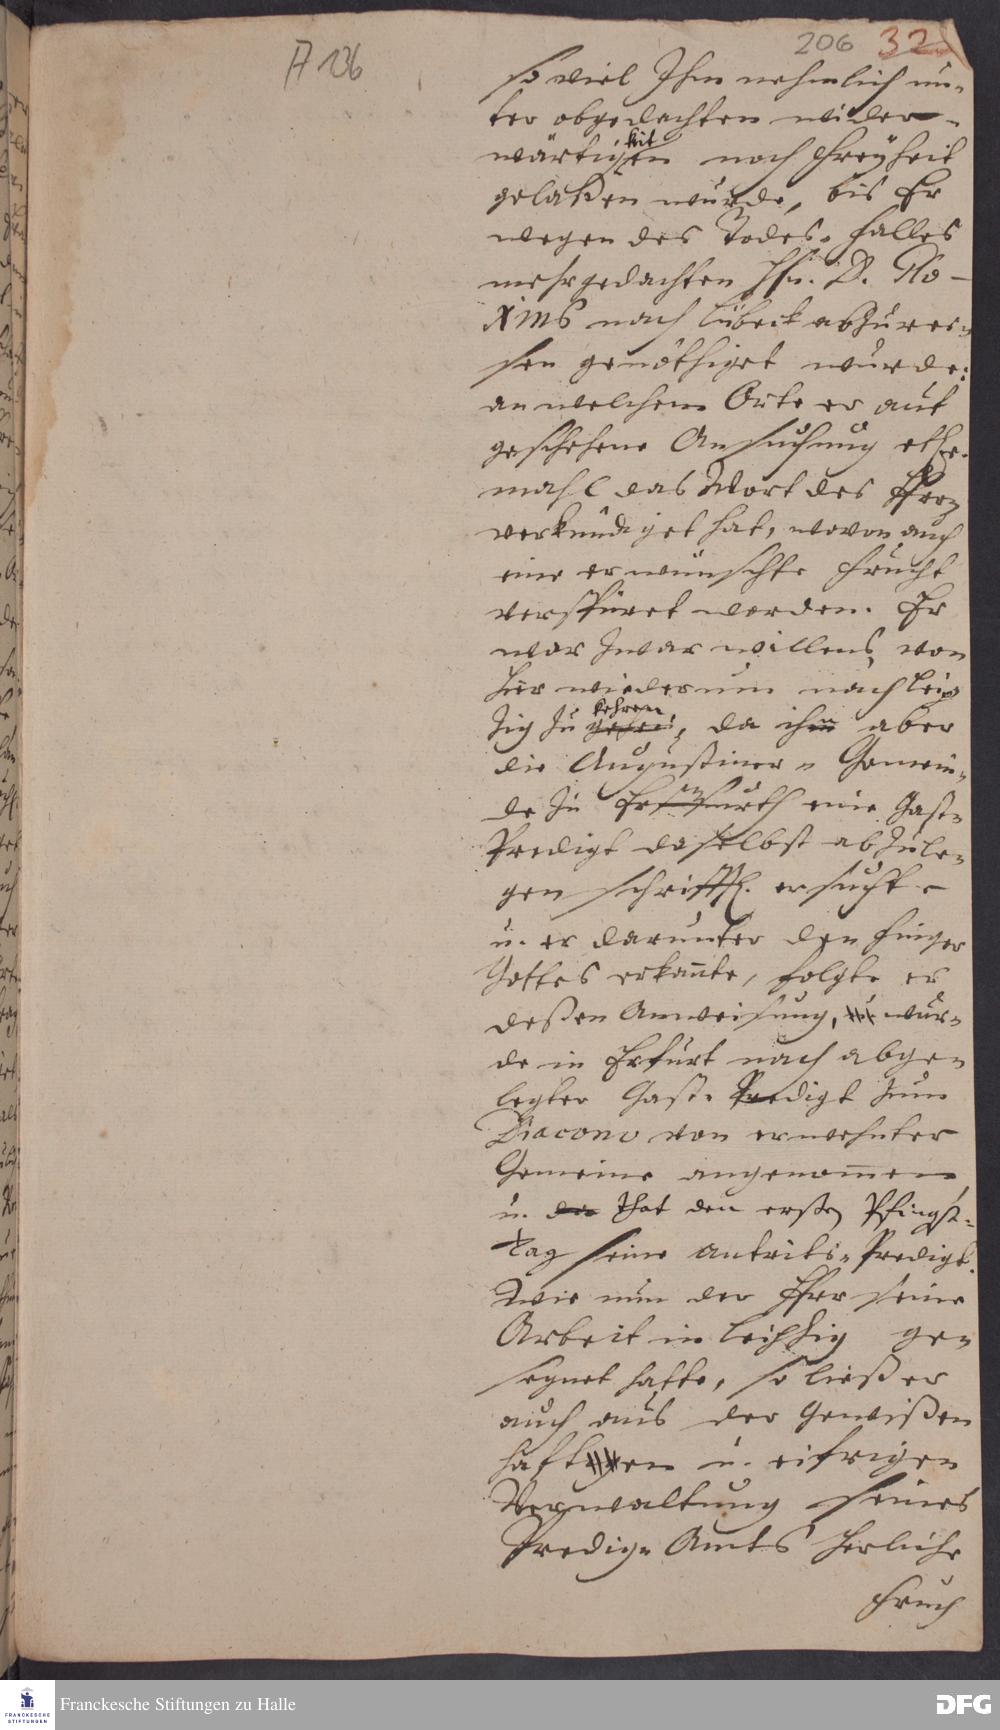 206 32
A 136
so viel Ihm nehmlich un-
ter obgedachten wider-
wärtigkeiten noch Freyheit
gelaßen wurde, bis Er
wegen des Todes-Falles
mehrgedachten Hn. D. Flo-
rins nach Lübeck abzurei-
sen genöthiget wurde:
an welchem Orte er auf
geschehene Ansuchung etl.
mahl das Wort des Herrn
verkündiget hat, wovon auch
eine erwünschte Frucht
verspüret worden. Er
war zwar willens, von
hier wiederum nach Leip
zig zu kehren, da ihm aber
die Augustiner-Gemein-
de in Erffurth eine Gast-
Predigt daselbst abzule-
gen schrifftl. ersuchte
u. er darunter den Finger
Gottes erkante, folgte er
deßen Anweisung, wur-
de in Erfurt nach abge-
legter Gast-Predigt zum
Diacono von erwehnter
Gemeine angenommen
u. that den ersten Pfingst-
tag seine Antrits-Predigt.
Wie nun der Herr seine
Arbeit in Leipzig ge-
segnet hatte, so ließ er
auch aus der Gewißen
hafften u. eifrigen
Verwaltung seines
Predig-Amts herliche
Fruch
Franckesche Stiftungen zu Halle
FRANCKESCHE
STIFTUNGEN
DFG